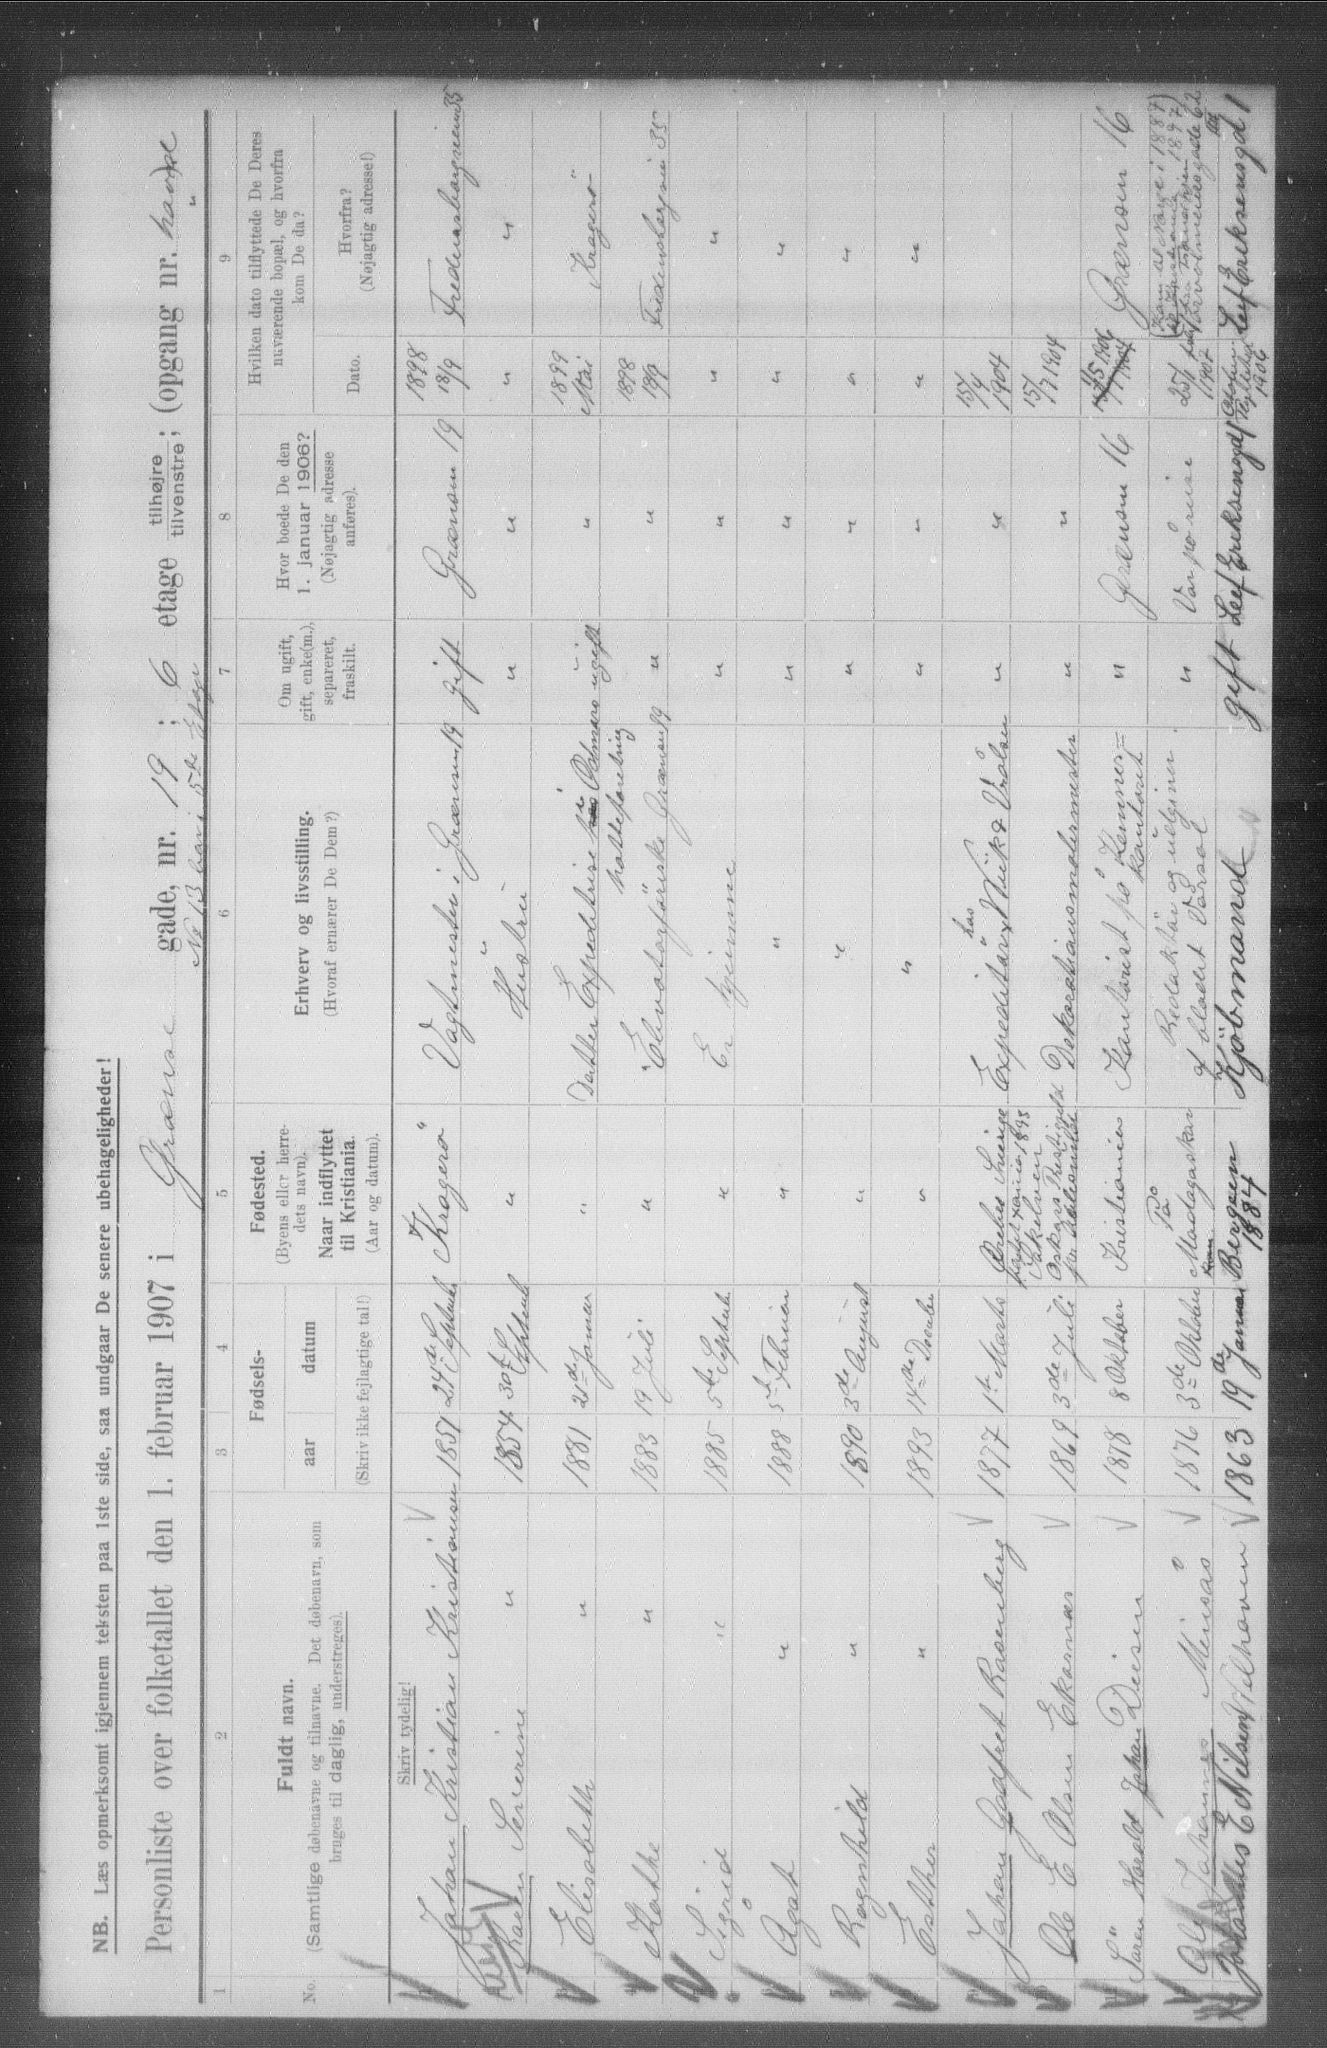 NB. Læs opmerksomt igjennem teksten paa 1ste side, saa undgaar De senere ubehageligheder!
Personliste over folketallet den 1. februar 1907 i Grænse gade, nr. 19 ; 6 etage tilhøjre / tilvenstre; (opgang nr.
No 13 bor i 5te Etage
1 2 3 4 5 6 7 8 9
No.
Fuldt navn.
(Samtlige døbenavne og tilnavne. Det døbenavn, som
bruges til daglig, understreges).
Fødsels-
aar datum
(Skriv ikke fejlagtige tal!)
Fødested.
(Byens eller herre-
dets navn).
Naar indflyttet
til Kristiania.
(Aar og datum).
Erhverv og livsstilling.
(Hvoraf ernærer De Dem?)
Om ugift,
gift, enke(m.),
separeret,
fraskilt.
Hvor boede De den
1. januar 1906?
(Nøjagtig adresse
anføres).
Hvilken dato tilflyttede De Deres
nuværende bopæl, og hvorfra
kom De da?
Dato.
Hvorfra?
(Nøjagtig adresse!)
Skriv tydelig!
Johan Kristian Kristiansen 1851 24de Septemb Kragerö Vagtmester i Grænsen 19 gift Grænsen 19 1898 18/9 Fredensborgveien 35
Karen Severine " 1854 30te Septemb " Hustru " " " "
Elisabeth " 1881 21de Januar " Datter Expeditrise ugift " 1899 Mai Kragerö
Kathe " 1883 19 Juli " Elevatorförerske Grænsen 19 " " 1898 18/9 Fredensborgvei 35
Sigrid " 1885 5te Septemb " Er hjemme " " " "
Agot " 1888 5te Februar " " " " " "
Ragnhild " 1890 3de August " " " " " "
Esther " 1893 14de " " " " " "
Johan Godfret Rosenberg 1877 1te Marts Sverige 1895 Expeditör hos " " 15/4 1904
Ole E Olsen Ekornæs 1869 3de Juli Dekorationsmalermester " " 15/7 1904
Sören Harald Johan 1878 8 Oktober Kristiania Kontorist på Kemner=kontoret " Grænsen 16 Grænsen 16
Ole Johannes 1876 3de Oktober På Madagaskar Redaktör og udgiver af bladet Varsol " Var på reise (Kom til Norge i 1887) 1897)
E Nilsen Welhaven 1863 19de Januar Bergen 1884 Kjöbmand gift Leif Eriksensgd 1 1906 Leif Eriksensgd 1